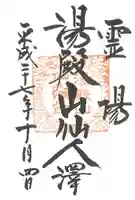 霊場
湯殿山仙人澤
平成二十七年十月四日